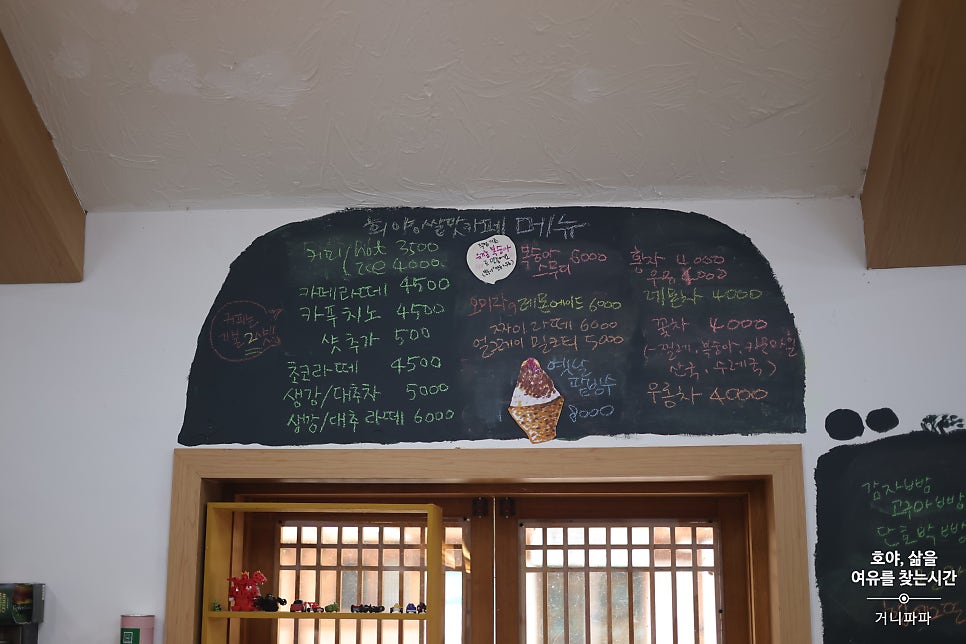 희양쌀맛카페 메뉴
커피/hot 3500
Ice 4000
카페라떼 4500
카푸치노 4500
샷추가 500
초코라떼 4500
생강/대추차 5000
생강/대추라떼 6000
커피는
기본 2샷!!
복숭아
스무디 6000
레몬에이드 6000
짜이라떼 6000
얼그레이 밀크티 5000
옛날
팥빙수
8000
홍차 4000
우엉 4000
레몬차 4000
꽃차 4000
산국,
우롱차 4000
감자범벅
단호박
호야, 삶을
여유를 찾는시간
거니파파